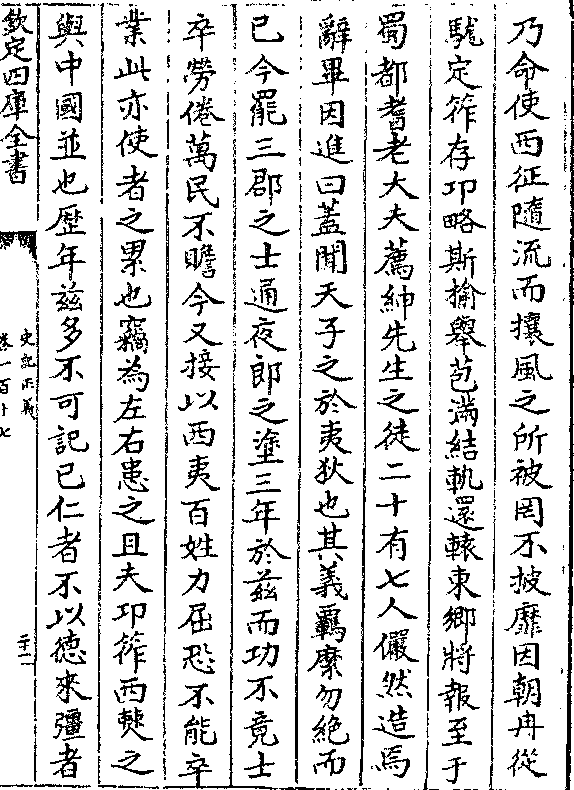 乃命使西征隨流而攘風之所被罔不披靡因朝冉從
駹定筰存邛略斯揄舉苞滿結軌還轅東鄉將報至于
蜀都耆老大夫薦紳先生之徒二十有七人儼然造焉
辭畢因進曰蓋聞天子之於夷狄也其義羈縻勿絶而
已今罷三郡之士通夜郎之塗三年於兹而功不竟士
卒勞倦萬民不贍今又接以西夷百姓力屈恐不能卒
業此亦使者之累也竊為左右患之且夫邛筰西僰之
與中國並也歴年兹多不可記已仁者不以德來彊者
欽定四庫全書
史記正義
卷一百十七
二十二